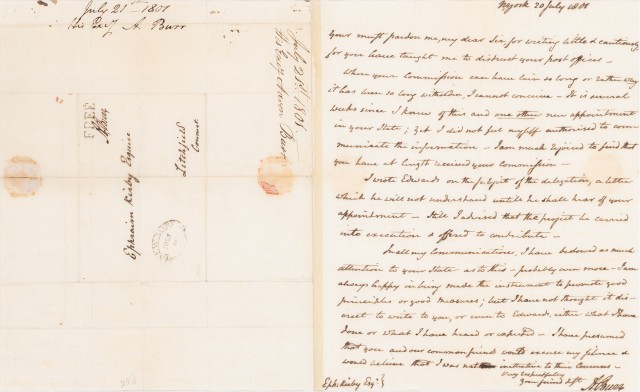 July 21st - 1801
His Excy A. Burr
July 21st 1801.
His Excy Aaron Burr
FREE
A Burr
Ephraim Kirby Esquire
Litchfield
Connect
Nyork 20 July 1801
your must pardon me, my dear Sir for writing little & cautiously
for you have taught me to distrust your post offices -
Where your Commission can have lain so long or rather why
it has been so long witholden, I cannot conceive - It is several
weeks since I knew of this and one other new appointment
in your State; yet I did not feel myself authorised to com
municate the information - I am much rejoiced to find that
you have at length received your Commission -
I wrote Edwards on the subject of the delegation, a letter
which he will not understand until he shall hear of your
appointment - Still I advised that the project be carried
into execution & offered to contribute -
In all my Communications, I have bestowed as much
attention to your State as to this - probably even more - I am
always happy in being made the instrument to promote good
principles or good measures; but I have not thought it dis-
creet to write to you, or even to Edwards, either what I have
done or what I have heard or expected - I have presumed
that you and our common friend would excuse my silence &
would believe that I was not inattentive to these Concerns -
Very respectfully
your friend & st
A Burr
Eph. Kirby Esqr